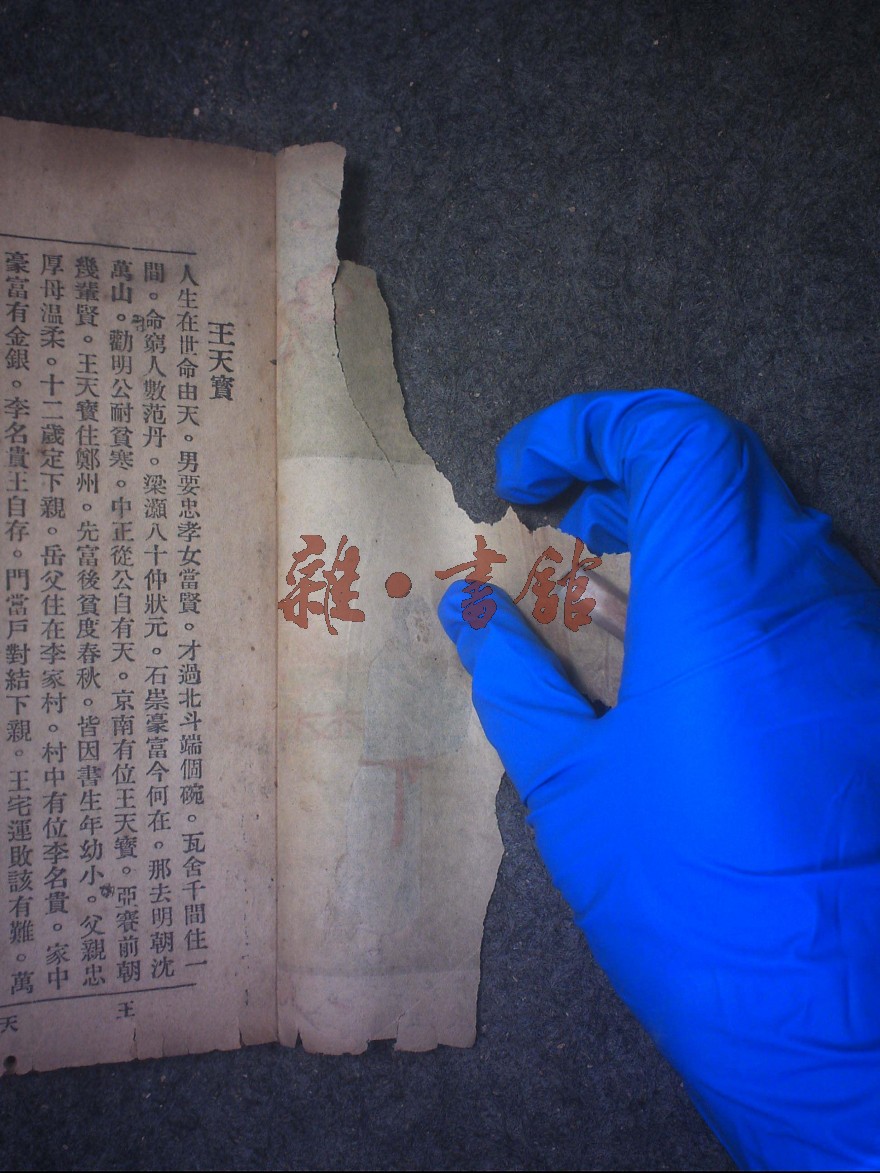 王天寶
人生在世命由天。男要忠孝女當賢。才過北斗端個碗。瓦舍千間住一
間。命窮人數范丹。梁灝八十仲狀元。石崇豪富今何在。那去明朝沈
萬山。勸明公耐貧寒。中正從公自有天。京南有位王天寶。亞賽前朝
幾輩賢。王天寶住鄭州。先富後貧度春秋。皆因書生年幼小。父親忠
厚母温柔。十二歲定下親。岳父住在李家村。村中有位李名貴。家中
豪富有金銀。李名貴王自存。門當戶對結下親。王宅運敗該有難。萬
王
天
雜·書館